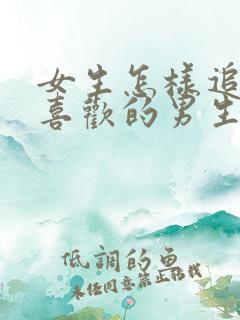 女生怎樣追
喜歡的男生
低調的魚
未任同意禁止轉載